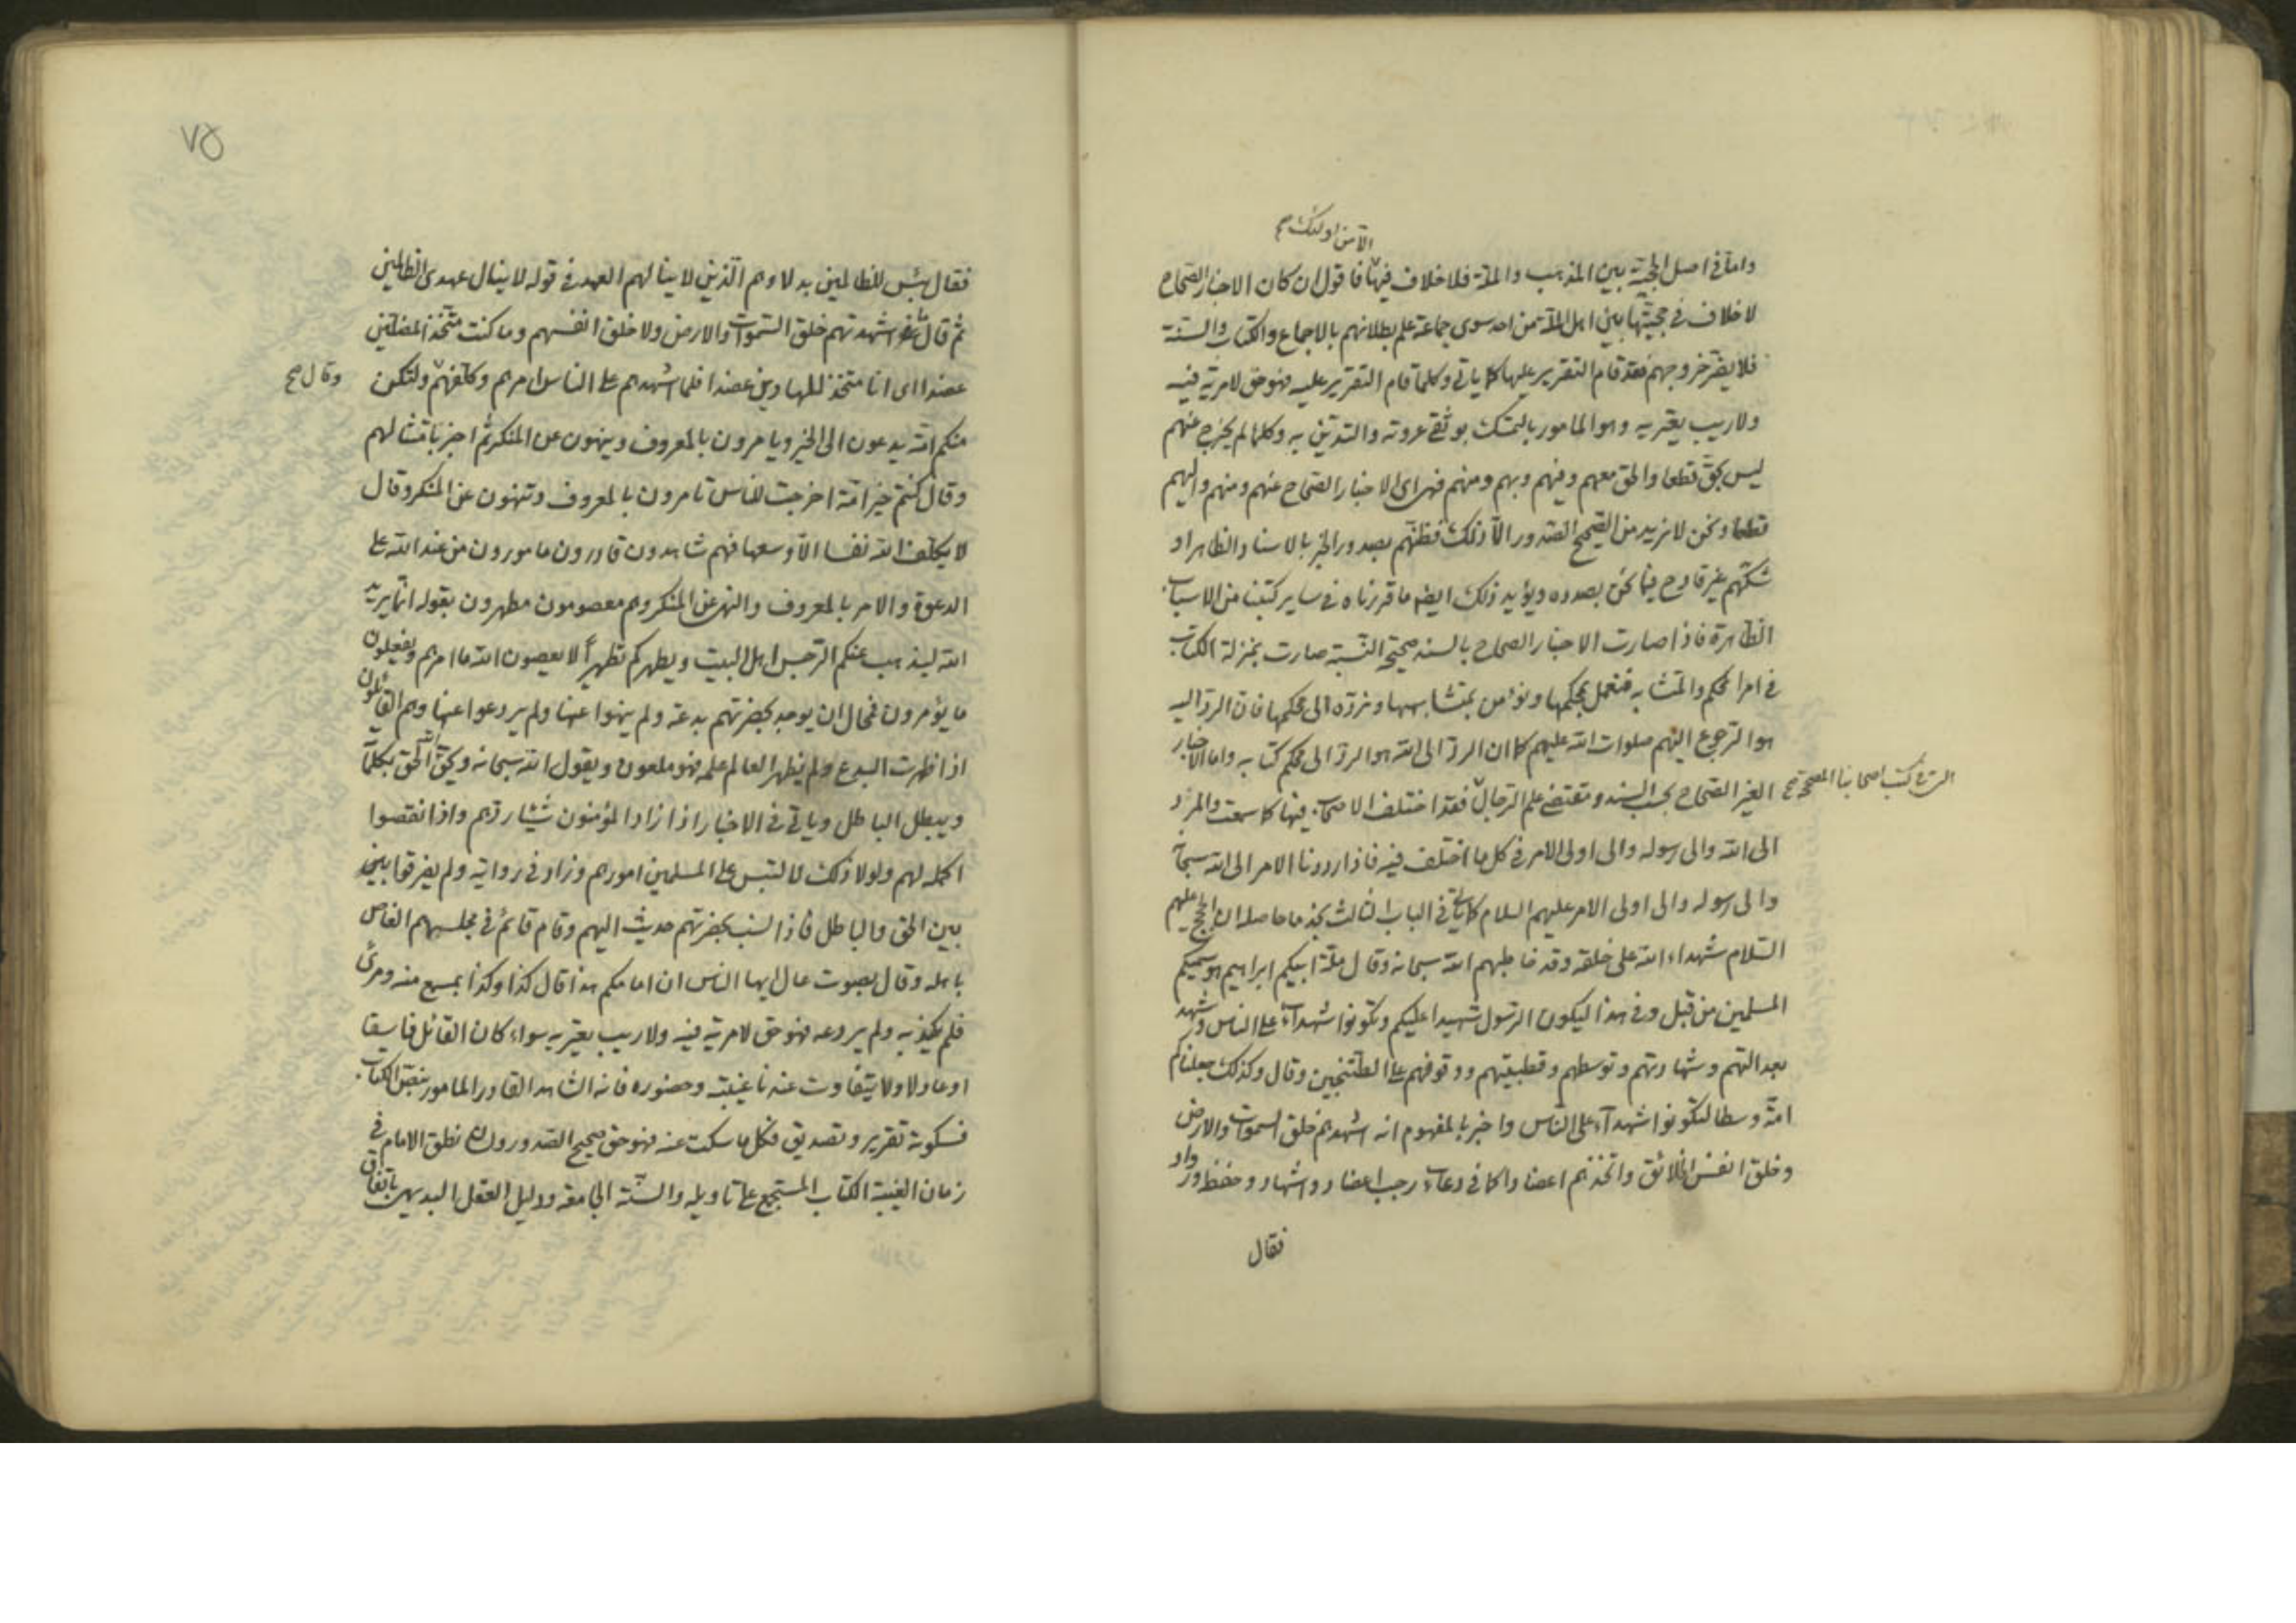 الا من اولئك صح
واما فى اصل الحجية بين المذهب والملة فلا خلاف فيها فاقول ان كان الاخبار الصحاح
لا خلاف فى حجيتها بين اهل الملة من احد سوى جماعة علم بطلانهم بالاجماع والكتاب والسنة
فلا يضر خروجهم فقد قام التقرير عليها كما ياتى وكلما قام التقرير عليه فهو حق لا مرية فيه
ولا ريب يعتريه وهو المامور بالتمسك بوثقى عروته والتدين به وكلما لم يخرج عنهم
ليس بحق قطعا والحق معهم وفيهم وبهم ومنهم فهى اى الاخبار الصحاح عنهم ومنهم واليهم
قطعا ونحن لا نريد من الصحيح الصدور الا ذلك فظنهم بصدور الخبر بالاسناد الظاهر او
شكهم غير قادح فيما نحن بصدده ويؤيد ذلك ايضا ما قررناه فى ساير كتبنا من الاسباب
الظاهرة فاذا صارت الاخبار الصحاح بالسند صحيحة النسبة صارت بمنزلة الكتاب
فى امر المحكم والمتشابه فنعمل بمحكمها ونؤمن بمتشابهها ونرده الى محكمها فان الرد اليه
هو الرجوع اليهم صلوات الله عليهم كما ان الرد الى الله هو الرد الى محكم كتابه واما الاخبار
التى فى كتب اصحابنا المصححة صح
الغير الصحاح بحسب السند ومقتضى علم الرجال فقد اختلف الاصحاب فيها كما سمعت والمرد
الى الله والى رسوله والى اولى الامر فى كل ما اختلف فيه فاذا رددنا الامر الى الله سبحانه
والى رسوله والى اولى الامر عليهم السلام كما ياتى فى الباب الثالث نجد ما حاصله ان الحجج عليهم
السلام شهداء الله على خلقه وقد خاطبهم الله سبحانه وقال ملة ابيكم ابراهيم هو سميكم
المسلمين من قبل وفى هذا ليكون الرسول شهيدا عليكم وتكونوا شهداء على الناس وشهد
بعدالتهم وشهادتهم وتوسطهم وقطبيتهم ووقوفهم على الطتنجين وقال وكذلك جعلناكم
امة وسطا لتكونوا شهداء على الناس واخبر بالمفهوم انه اشهدهم خلق السموات والارض
وخلق انفس الخلائق واتخذهم اعضادا كما فى دعاء رجب اعضاد واشهاد وحفظة ورواد
فقال
٧٥
فقال بئس للظالمين بدلا وهم الذين لا ينالهم العهد فى قوله لا ينال عهدى الظالمين
ثم قال ما اشهدتهم خلق السموات والارض ولا خلق انفسهم وما كنت متخذ المضلين
عضدا اى انا متخذ للهادين عضدا فلما اشهدهم على الناس امرهم وكلفهم ولتكن
وقال صح
منكم امة يدعون الى الخير ويامرون بالمعروف وينهون عن المنكر ثم اخبر بامتثالهم
وقال كنتم خير امة اخرجت للناس تامرون بالمعروف وتنهون عن المنكر وقال
لا يكلف الله نفسا الا وسعها فهم شاهدون قادرون مامورون من عند الله على
الدعوة والامر بالمعروف والنهى عن المنكر وهم معصومون مطهرون بقوله انما يريد
الله ليذهب عنكم الرجس اهل البيت ويطهركم تطهيرا لا يعصون الله ما امرهم ويفعلون
ما يؤمرون فمحال ان يوجد بحضرتهم بدعة ولم ينهوا عنها ولم يردعوا عنها وهم القائلون
اذا ظهرت البدع ولم يظهر العالم علمه فهو ملعون ويقول الله سبحانه ويحق الله الحق بكلماته
ويبطل الباطل وياتى فى الاخبار اذا زاد المؤمنون شيئا ردهم واذا نقصوا
اكمله لهم ولولا ذلك لالتبس على المسلمين امورهم وزاد فى رواية ولم يفرقوا بين
بين الحق والباطل فاذا نسب بحضرتهم حديث اليهم وقام قائم فى مجلسهم الغاص
باهله وقال بصوت عال ايها الناس ان امامكم هذا قال كذا وكذا بمسمع منه ومرئ
فلم يكذبه ولم يردعه فهو حق لا مرية فيه ولا ريب يعتريه سواء كان القائل فاسقا
او عادلا ولا يتفاوت عندنا غيبته وحضوره فانه الشاهد القادر المامور بنص الكتاب
فسكوته تقرير وتصديق فكل ما سكت عنه فهو حق صحيح الصدور وان نطق الامام فى
زمان الغيبة الكتاب المستجمع على تاويله والسنة الجامعة ودليل العقل البديهى باتفاق